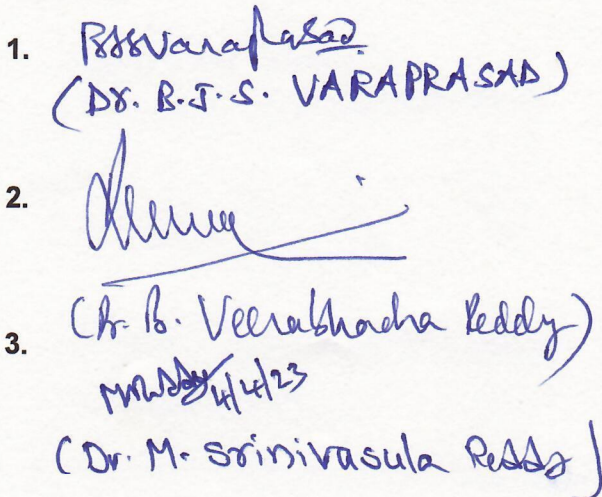 1. BJSVaraprasad
(Dr. B.J.S. VARAPRASAD)
2.
(Dr. B. Veerabhadra Reddy)
3.
4/4/23
(Dr. M. Srinivasula Reddy)